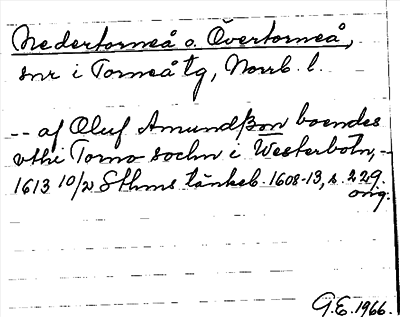 Nedertorneå o. Övertorneå,
snr i Torneå tg, Norrb. l.
-- af Oluf Amundßon boendes
vthi Torno sochn i Westerbotn, -
1613 10/2 Sthms tänkeb. 1608-13, s. 229.
orig.
G.E. 1966.